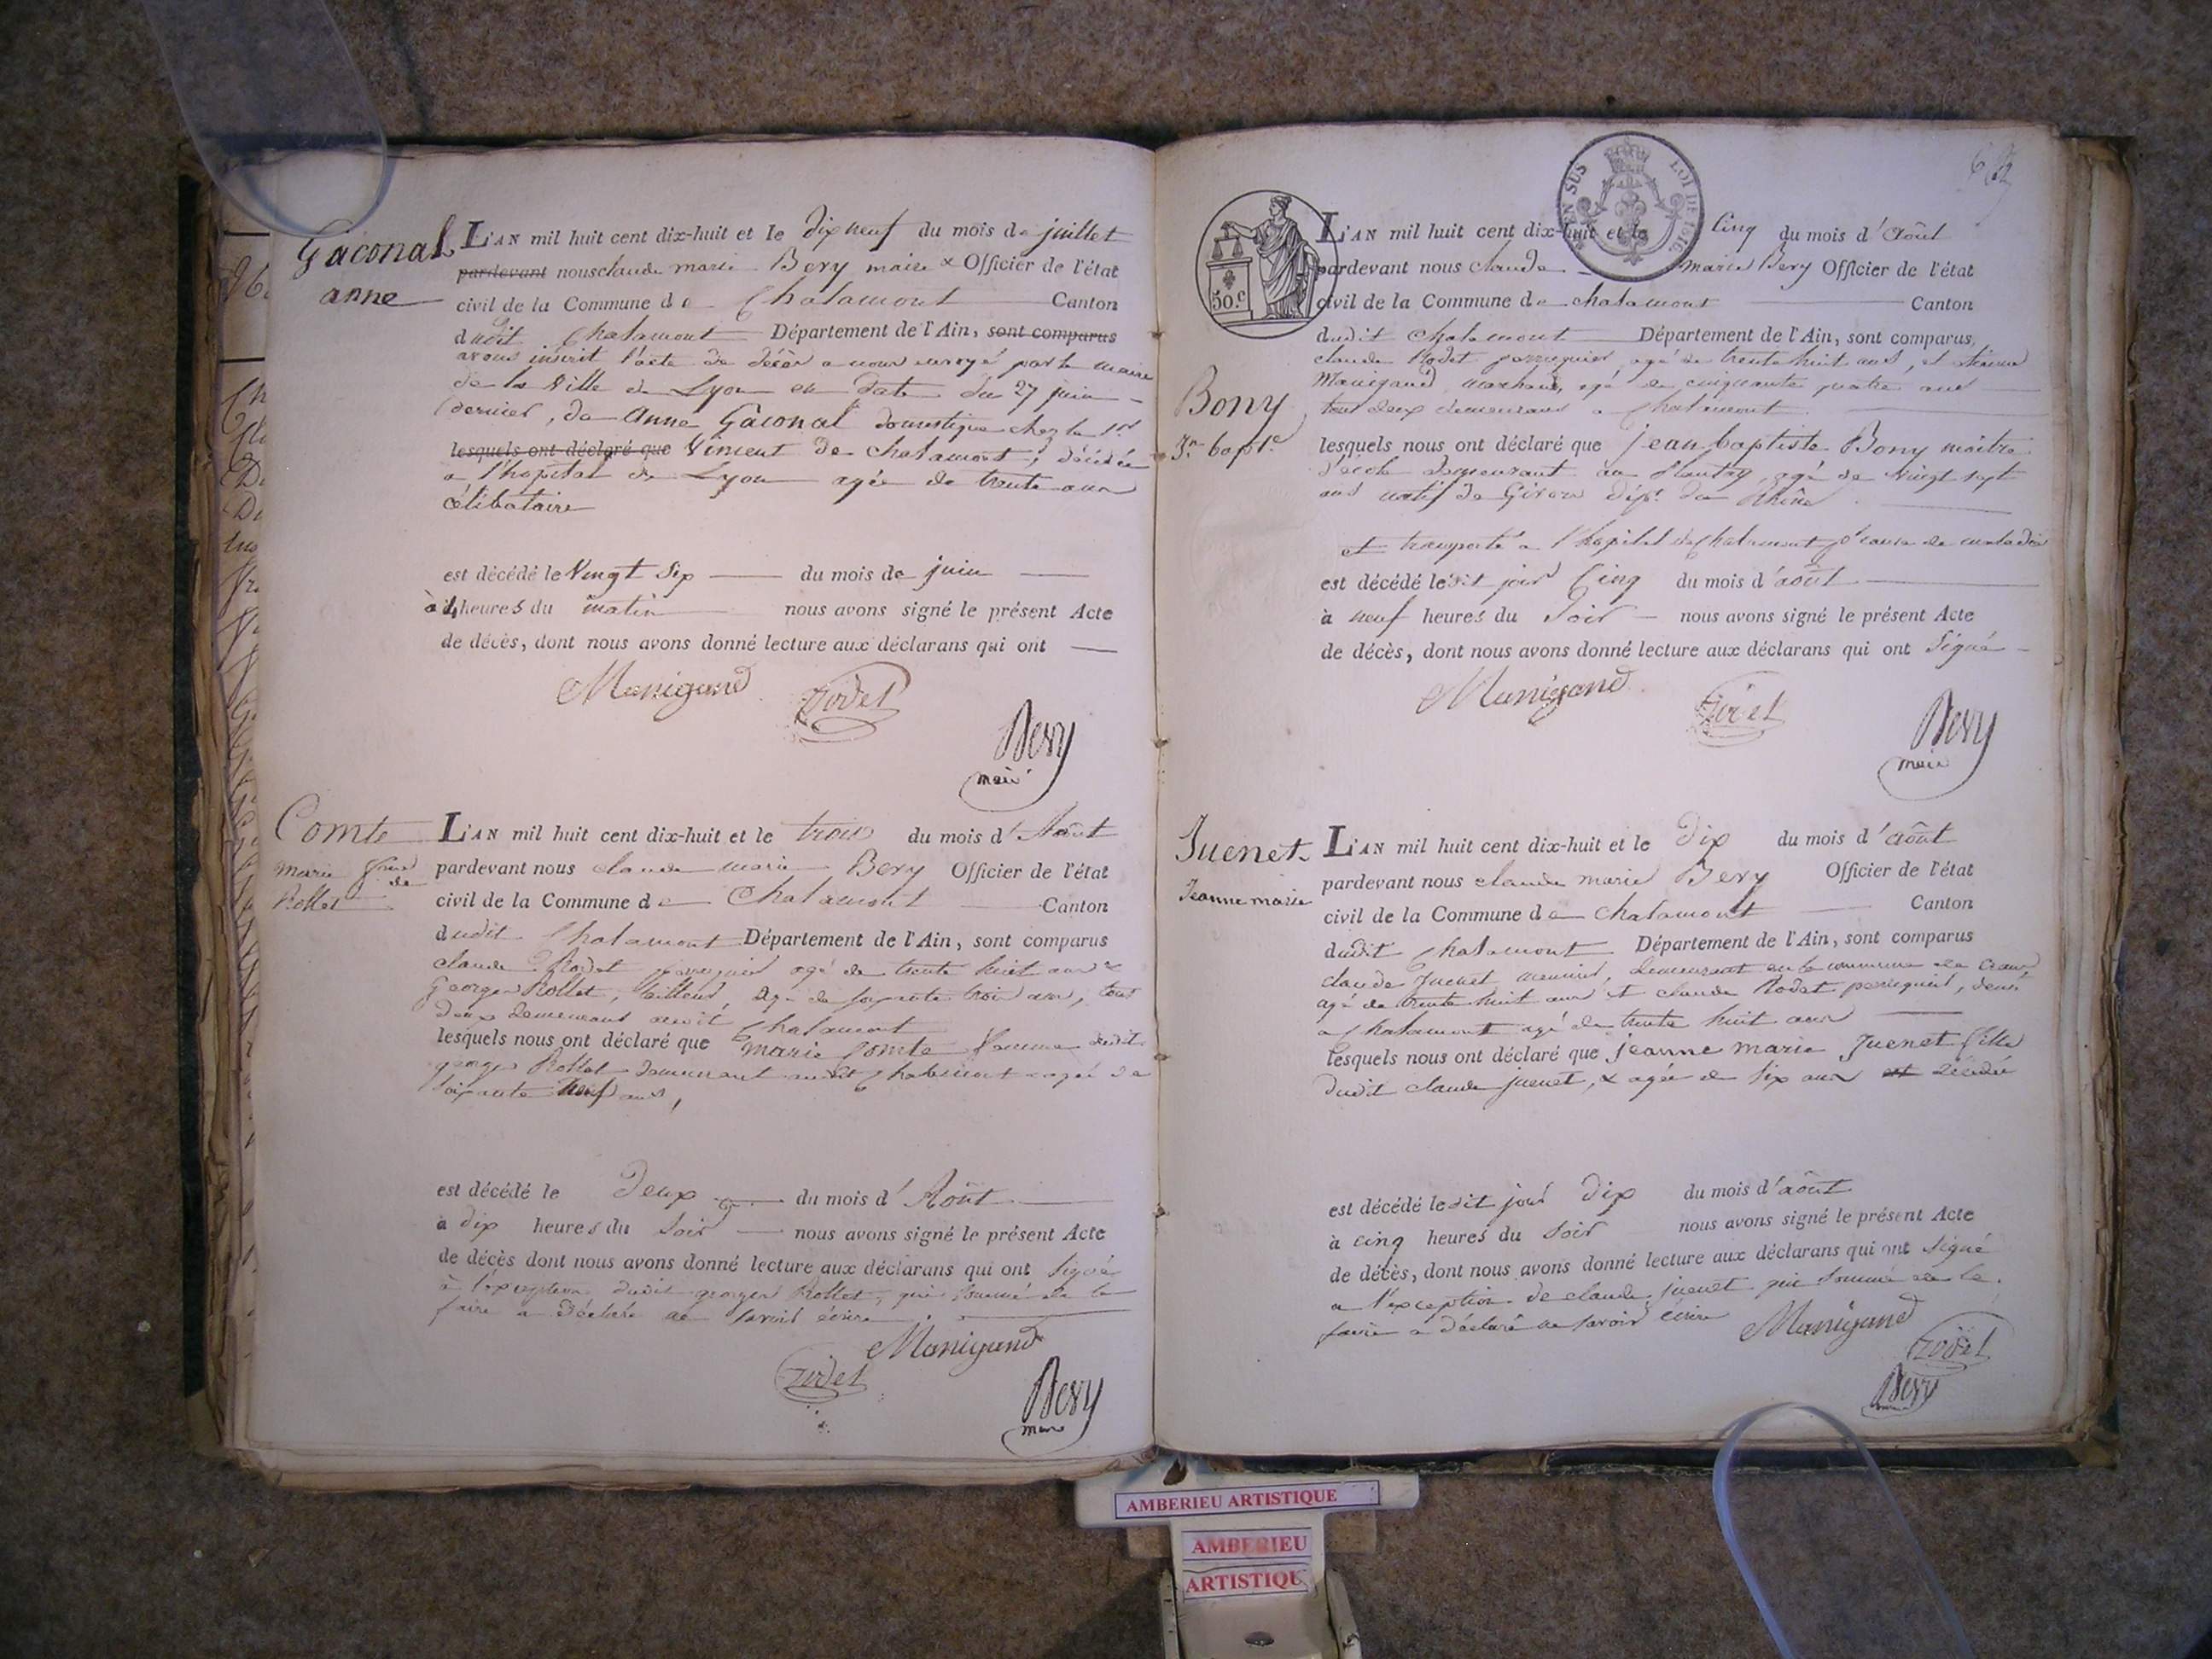 Gaconal
anne
L'AN mil huit cent dix-huit et le dix neuf du mois de juillet
pardevant nous claude marie Bery maire & Officier de l'état
civil de la Commune de Chalamont Canton
dudit Chalamont Département de l'Ain, sont comparus
avons inscrit l'acte de décès a nous envoyé par le maire
de la Ville de Lyon en date du 27 juin
dernier, de Anne Gaconal domestique chez le Sr
lesquels ont déclaré que Vincent de chalamont, décédée
a l'hopital de Lyon agée de trente ans
célibataire
est décédé le Vingt Six du mois de juin
à 4 heures du matin nous avons signé le présent Acte
de décès, dont nous avons donné lecture aux déclarans qui ont
Manigand Rodet
Bery
maire
Comte
marie
de
Rollet
L'AN mil huit cent dix-huit et le trois du mois d'Août
pardevant nous claude marie Bery Officier de l'état
civil de la Commune de Chalamont Canton
dudit Chalamont Département de l'Ain, sont comparus
claude Rodet agé de trente huit ans &
George Rollet, tailleur, agé de soixante trois ans, tous
deux demeurant Chalamont
lesquels nous ont déclaré que marie Comte femme dudit
george Rollet demeurant Chalamont agée de
soixante neuf ans,
est décédé le Deux du mois d'Août
à dix heures du Soir nous avons signé le présent Acte
de décès dont nous avons donné lecture aux déclarans qui ont signé
à l'exception dudit george Rollet, qui sommé de le
faire a déclaré ne savoir écrire
Manigand
Rodet
Bery
maire
50.c
EN SUS LOI DE 1816
L'AN mil huit cent dix-huit et le Cinq du mois d'Août
pardevant nous claude marie Bery Officier de l'état
civil de la Commune de chalamont Canton
dudit chalamont Département de l'Ain, sont comparus,
claude Rodet perruquier, agé de trente huit ans, et
Manigand marchand, agé de cinquante quatre ans
tous deux demeurans a Chalamont
Bony
Jn bapte
lesquels nous ont déclaré que jean baptiste Bony maître
d'école demeurant au agé de Vingt sept
ans natif de Givors dépt du Rhône
et transporté a l'hopital de Chalamont pr cause de maladie
est décédé le dit jour Cinq du mois d'août
à neuf heures du Soir nous avons signé le présent Acte
de décès, dont nous avons donné lecture aux déclarans qui ont Signé
Manigand Rodet
Bery
maire
Juenet
Jeanne marie
L'AN mil huit cent dix-huit et le Dix du mois d'Août
pardevant nous claude marie Bery Officier de l'état
civil de la Commune de Chalamont Canton
dudit Chalamont Département de l'Ain, sont comparus
claude Juenet demeurant en la commune de Crans,
agé de trente huit ans et claude Rodet perruquier,
a Chalamont agé de trente huit ans
lesquels nous ont déclaré que jeanne marie Juenet fille
dudit claude juenet, & agée de Six ans est décédée
est décédé le dit jour dix du mois d'août
à cinq heures du Soir nous avons signé le présent Acte
de décès, dont nous avons donné lecture aux déclarans qui ont Signé
a l'exception de claude juenet qui sommé de le
faire a déclaré ne savoir écrire Manigand
Rodet
Bery
AMBERIEU ARTISTIQUE
AMBERIEU
ARTISTIQU